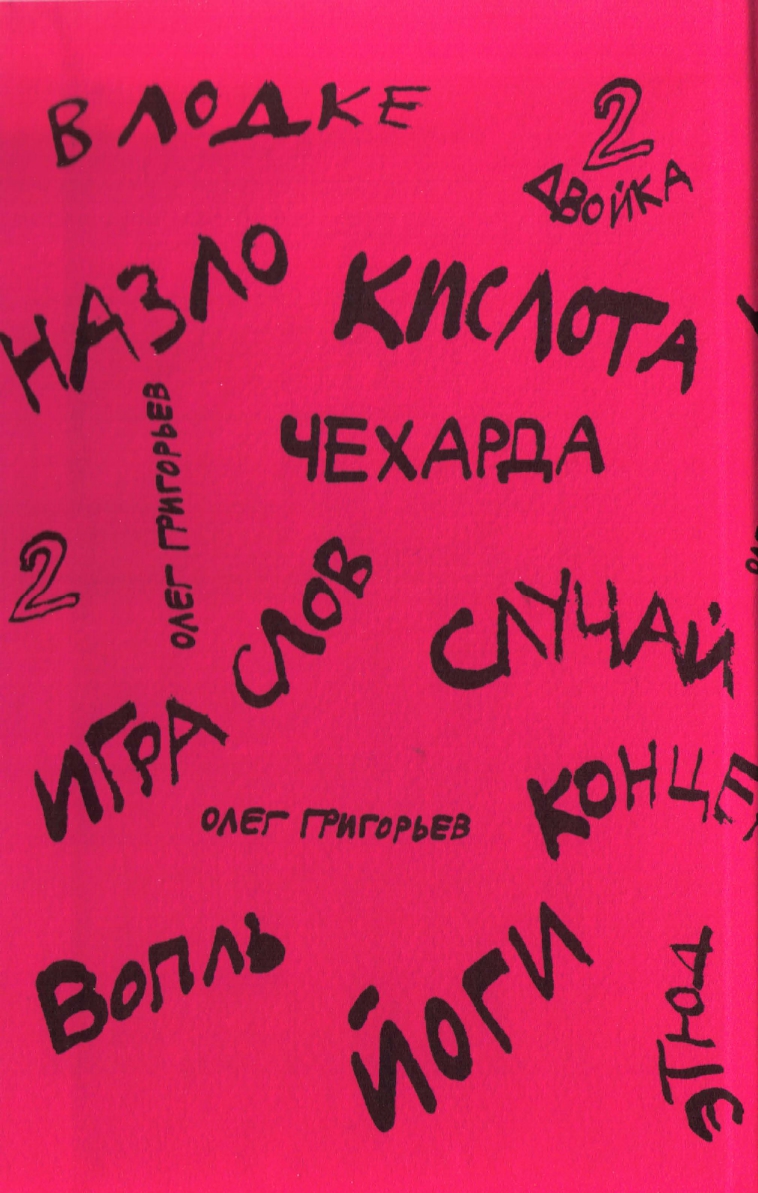 В ЛОДКЕ
2
ДВОЙКА
НАЗЛО
КИСЛОТА
ЧЕХАРДА
ОЛЕГ ГРИГОРЬЕВ
2
ИГРА СЛОВ
СЛУЧАЙ
КОНЦЕ
ОЛЕГ ГРИГОРЬЕВ
ВОПЛЬ
ЙОГИ
ЭТЮД